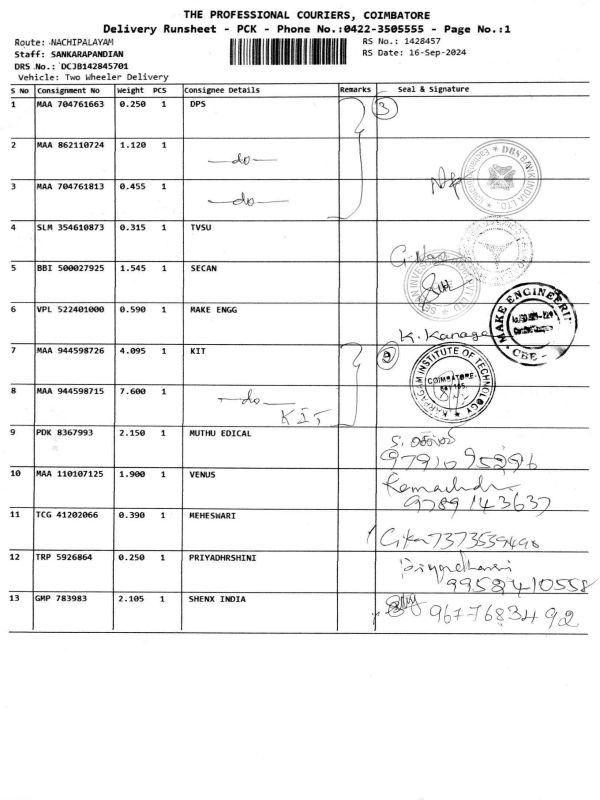 THE PROFESSIONAL COURIERS, COIMBATORE
Delivery Runsheet - PCK - Phone No.:0422-3505555 - Page No.:1
Route: NACHIPALAYAM RS No.: 1428457
Staff: SANKARAPANDIAN RS Date: 16-Sep-2024
DRS No.: DCJB142845701
Vehicle: Two Wheeler Delivery
S No Consignment No Weight PCS Consignee Details Remarks Seal & Signature
1 MAA 704761663 0.250 1 DPS 3
2 MAA 862110724 1.120 1 —do—
DBS BANK INDIA LTD.
3 MAA 704761813 0.455 1 —do—
4 SLM 354610873 0.315 1 TVSU
5 BBI 500027925 1.545 1 SECAN
6 VPL 522401000 0.590 1 MAKE ENGG K. Kanaga
MAKE ENGINEERING
CBE
7 MAA 944598726 4.095 1 KIT 9
KARPAGAM INSTITUTE OF TECHNOLOGY
COIMBATORE
8 MAA 944598715 7.600 1 —do—
KIT
9 PDK 8367993 2.150 1 MUTHU EDICAL
9791095296
10 MAA 110107125 1.900 1 VENUS Ramachdr
9789143637
11 TCG 41202066 0.390 1 MEHESWARI Gika 7373539490
12 TRP 5926864 0.250 1 PRIYADHRSHINI
9958410558
13 GMP 783983 2.105 1 SHENX INDIA 9677683492